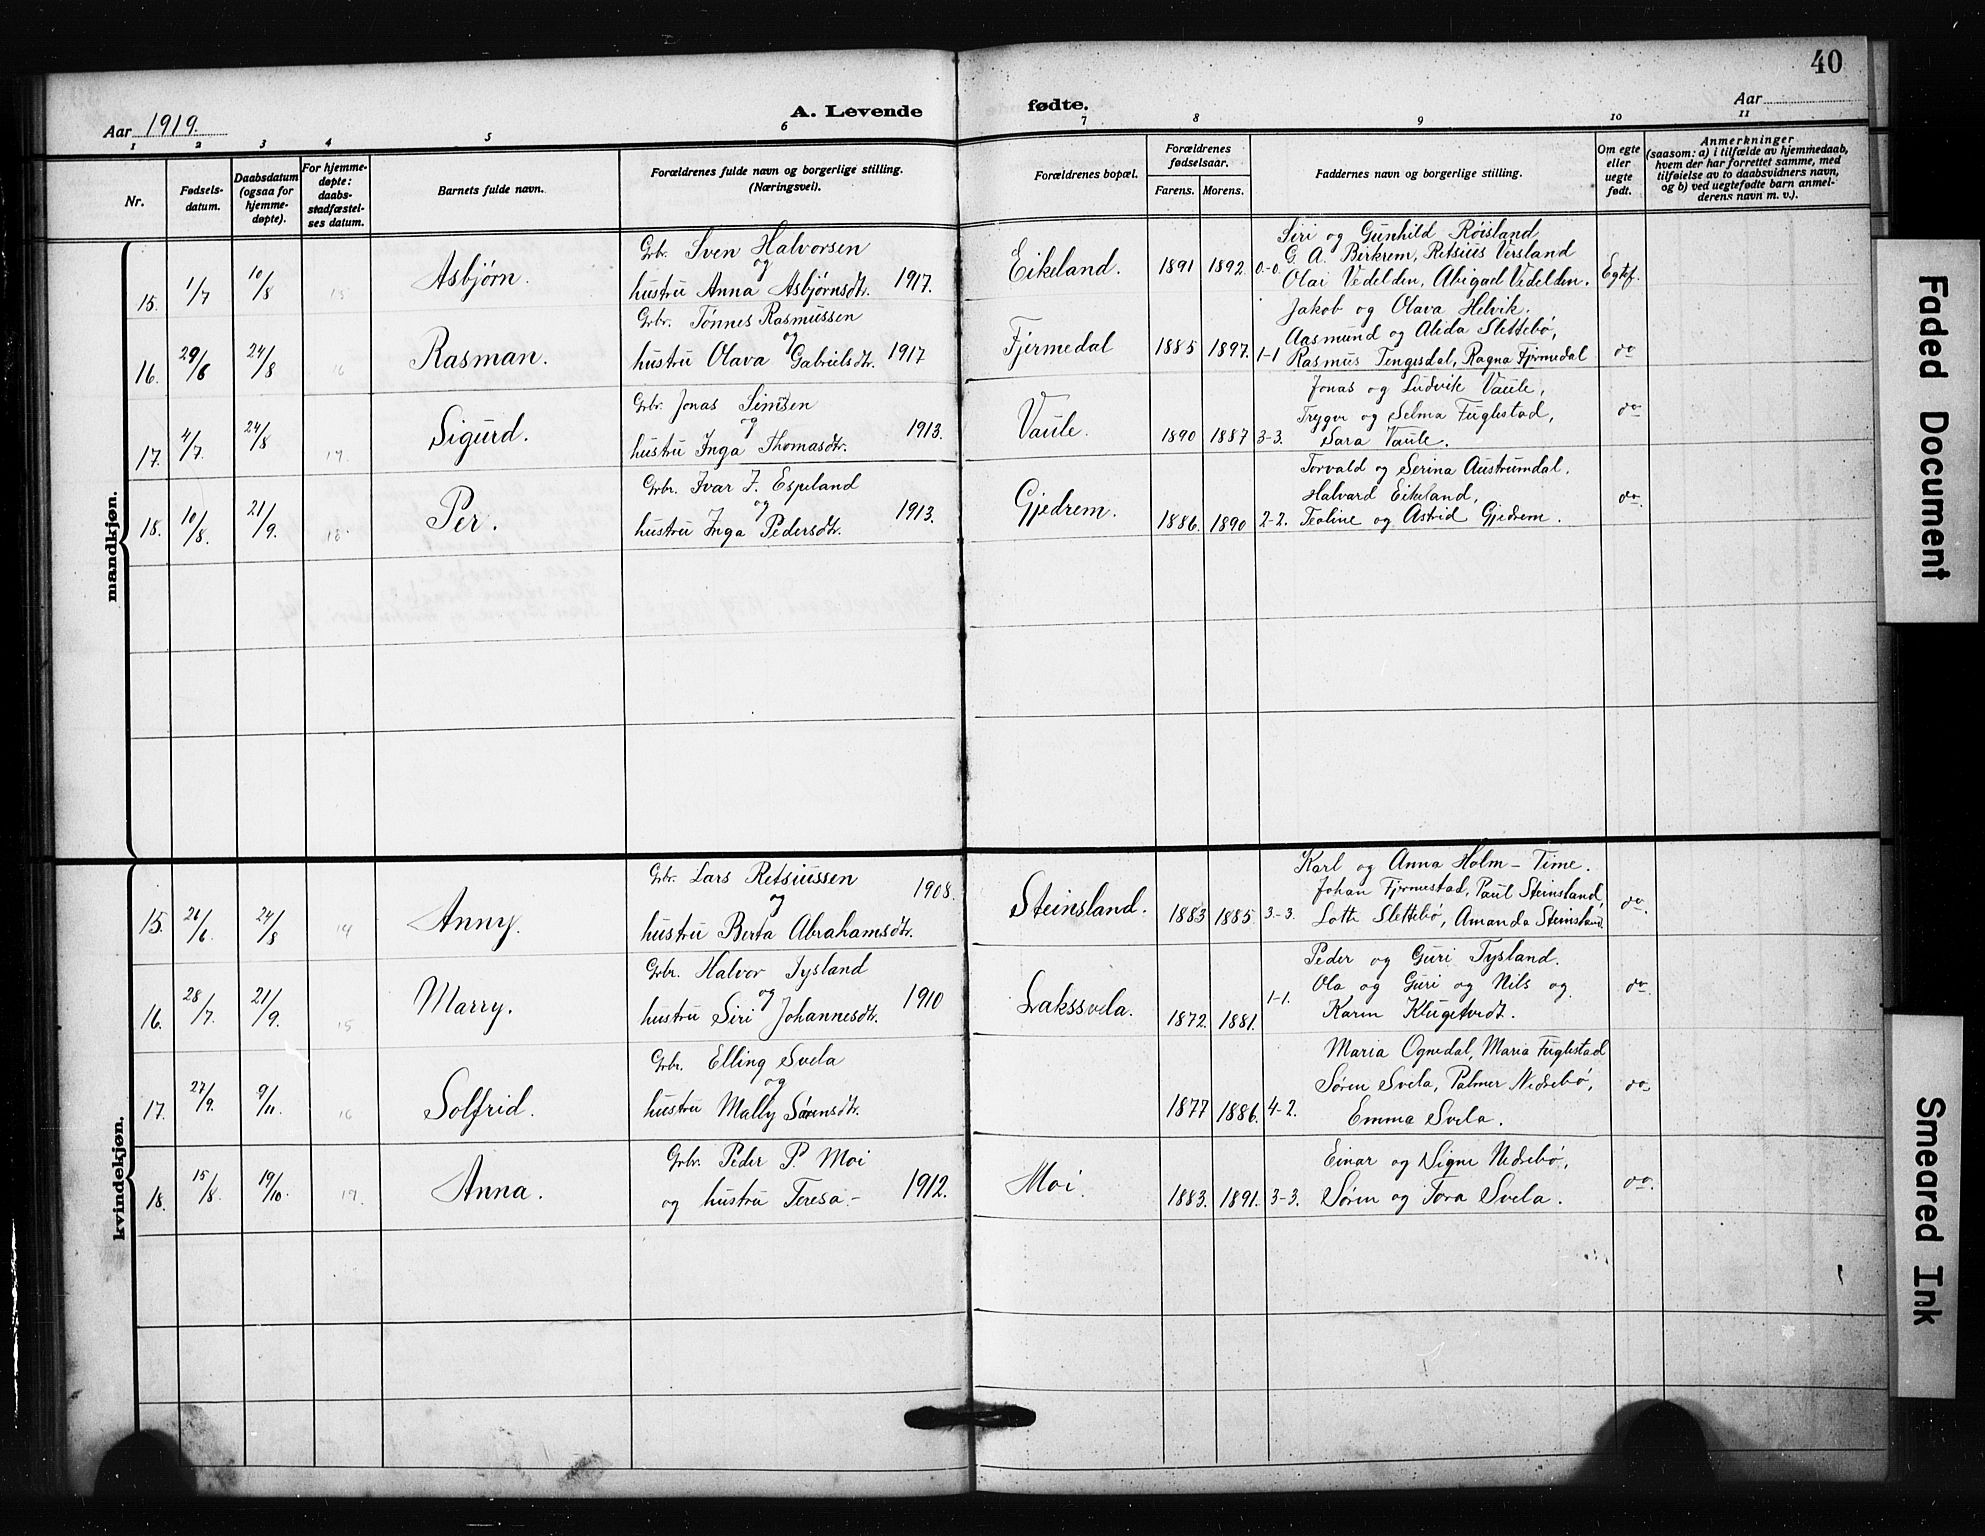 40
A. Levende fødte.
Aar 1919.
Aar
1 2 3 4 5 6 7 8 9 10 11
Nr.
Fødsels-
datum.
Daabsdatum
(ogsaa for
hjemme-
døpte).
For hjemme-
døpte:
daabs-
stadfæstel-
ses datum.
Barnets fulde navn.
Forældrenes fulde navn og borgerlige stilling.
(Næringsvei).
Forældrenes bopæl.
Forældrenes
fødselsaar.
Farens. Morens.
Faddernes navn og borgerlige stilling.
Om egte
eller
uegte
født.
Anmerkninger
(saasom: a) i tilfælde av hjemmedaab,
hvem der har forrettet samme, med
tilføielse av to daabsvidners navn,
og b) ved uegtefødte barn anmel-
derens navn m. v.).
mandkjøn.
15. 1/7 10/8 15 Asbjørn.
Grbr. Sven Halvorsen
og
hustru Anna Asbjørnsdtr. 1917.
Eikeland. 1891 1892. 0-0.
Siri og Gunhild Røisland,
G. A. Birkrem, Retsius Versland
Olai Vedelden, Abigael Vedelden.
Egtef.
16. 29/6 24/8 16 Rasman.
Grbr. Tönnes Rasmussen
og
hustru Olava Gabrielsdtr. 1917
Fjermedal 1885 1897. 1-1
Jakob og Olava Helvik.
Aasmund og Alida Slettebø,
Rasmus Tengesdal, Ragna Fjermedal
do
17. 4/7. 24/8 17. Sigurd.
Grbr. Jonas Simsen
og
hustru Inga Thomasdtr. 1913.
Vaule. 1890 1887 3-3.
Jonas og Ludvik Vaule,
Trygve og Selma Fuglestad,
Sara Vaule.
do
18. 10/8. 21/9. 18 Per.
Grbr. Ivar J. Espeland
og
hustru Inga Pedersdtr. 1913.
Gjedrem. 1886. 1890 2-2.
Torvald og Serina Austrumdal.
Halvard Eikeland,
Teoline og Astrid Gjedrem.
do.
kvindekjøn.
15. 26/6. 24/8 14 Anny.
Grbr. Lars Retsiussen
og
hustru Berta Abrahamsdtr. 1908.
Steinsland. 1883 1885. 3-3.
Karl og Anna Holm - Time.
Johan Fjermestad, Paul Steinsland,
Lotte Slettebø, Amanda Steinsland
do.
16. 28/7. 21/9. 15 Marry.
Grbr. Halvor Tysland
og
hustru Siri Johannesdtr. 1910
Lakssvela. 1872. 1881. 1-1.
Peder og Guri Tysland.
Ola og Guri og Nils og
Karin Klugetvedt.
do.
17. 27/9. 9/11. 16 Solfrid.
Grbr. Elling Svela
og
hustru Mally Sørensdtr.
1877 1886. 4-2.
Maria Ognedal, Maria Fuglestad
Søren Svela, Palmer Nedrebø,
Emma Svela.
do
18. 15/8. 19/10. 17. Anna.
Grbr. Peder P. Moi
og hustru Teresa - 1912.
Moi. 1883. 1891. 3-3.
Einar og Signe Nedrebø,
Søren og Tora Svela.
do.
Faded Document
Smeared Ink